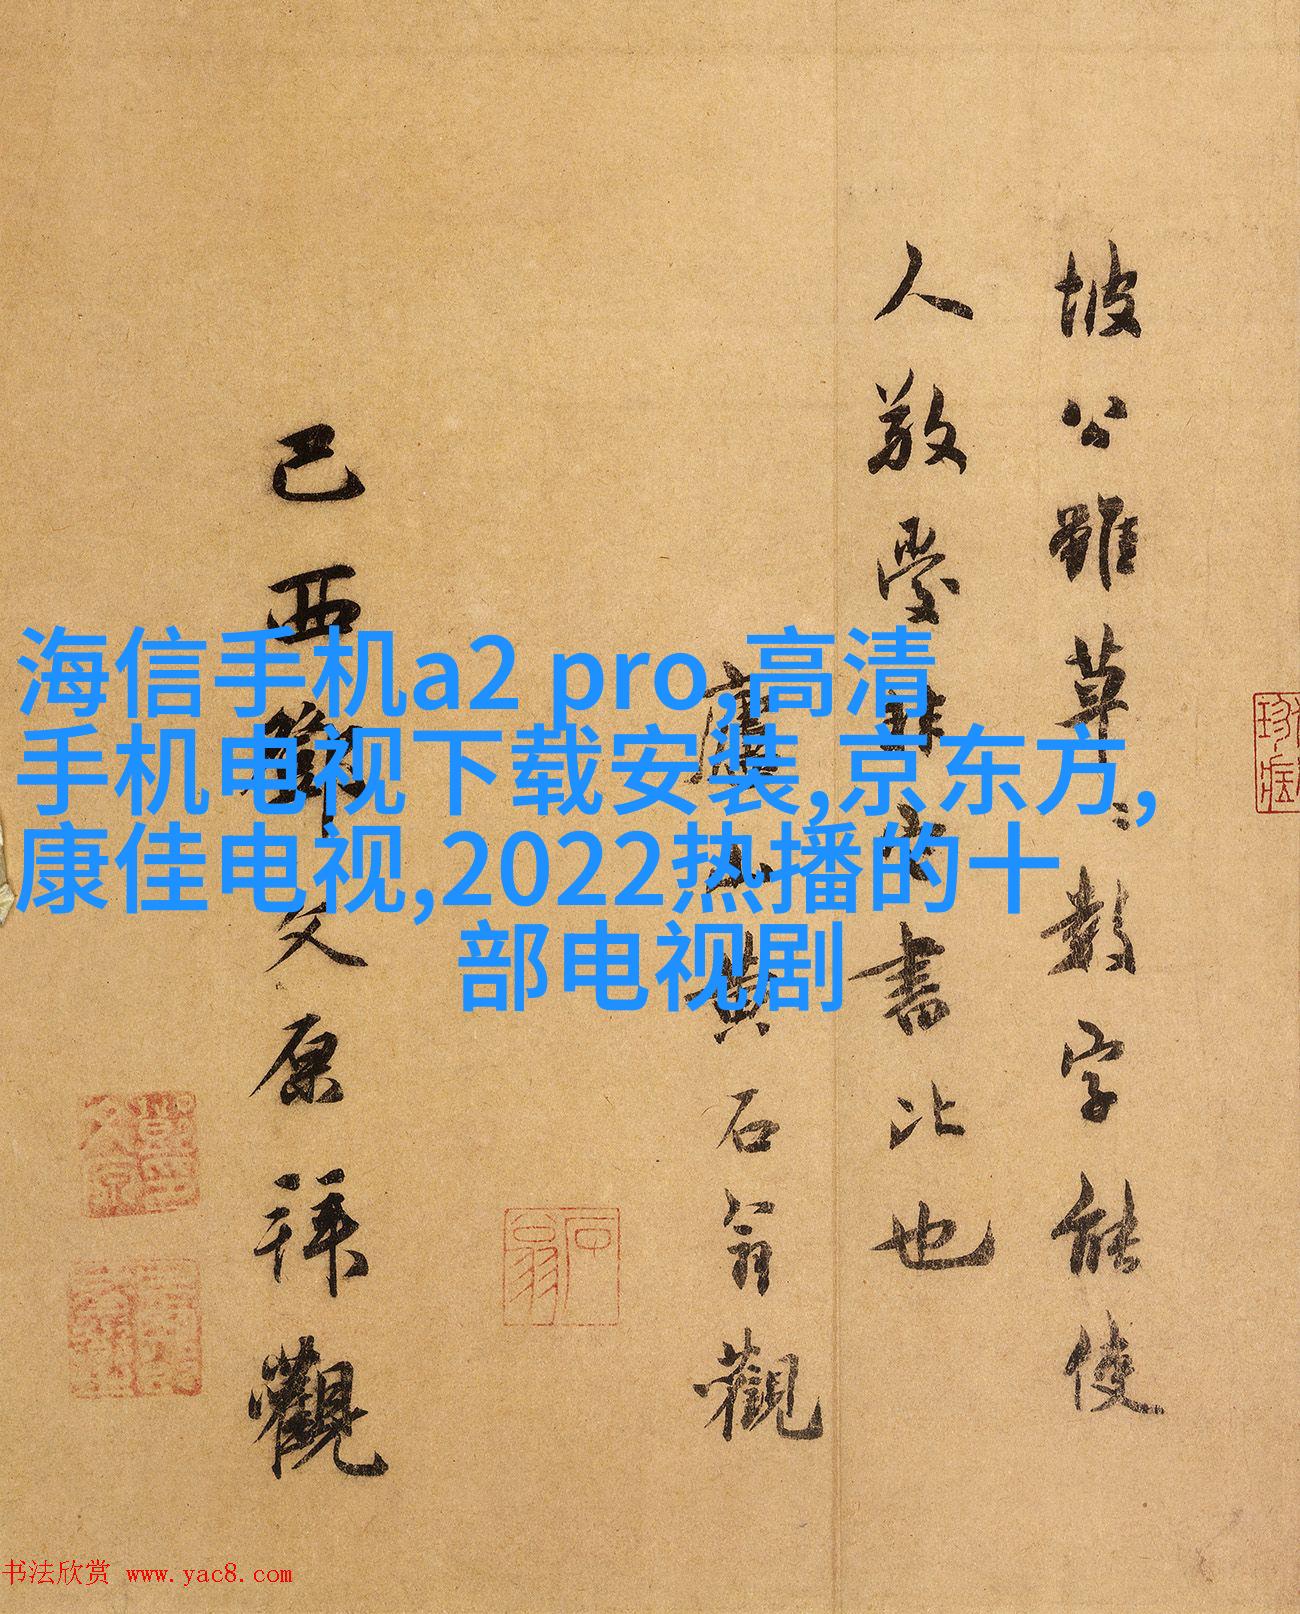 海信手机a2 pro,高清
手机电视下载安装,京东方,
康佳电视,2022热播的十
部电视剧
坡公雖草〻數字能使
人敬愛
書比也
黄石翁觀
己酉鄧文原拜觀
石翁
书法欣赏 www.yac8.com